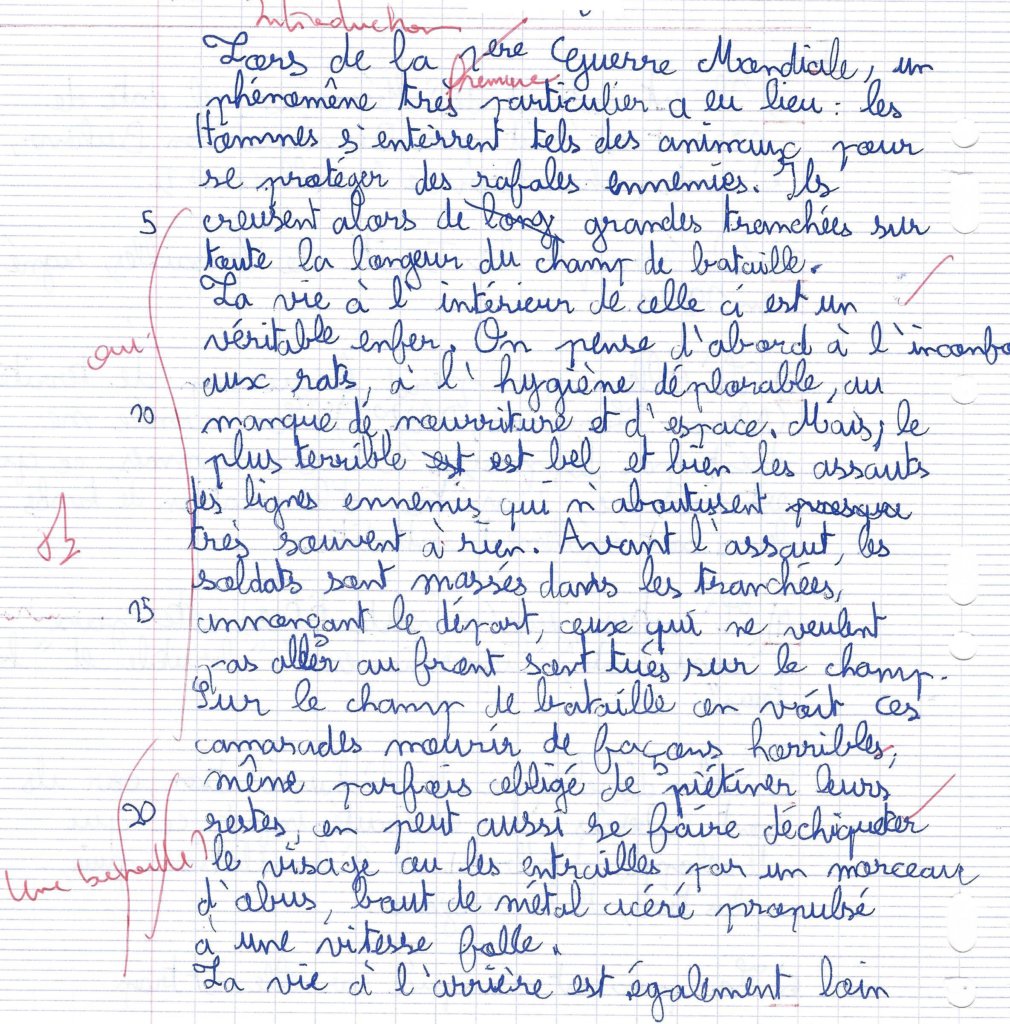 Introduction
Lors de la 1ere Guerre Mondiale, un
Première
phénomène très particulier a eu lieu : les
Hommes s'entèrrent tels des animaux pour
se protéger des rafales ennemies. Ils
5 creusent alors de long grandes tranchées sur
toute la longeur du champ de bataille.
La vie à l'intérieur de celle ci est un
véritable enfer. On pense d'abord à l'inconfo
oui
aux rats, à l'hygiène déplorable, au
10 manque de nourriture et d'espace. Mais, le
plus terrible est est bel et bien les assauts
des lignes ennemis qui n'aboutissent presque
très souvent à rien. Avant l'assaut, les
soldats sont massés dans les tranchées,
15 annonçant le départ, ceux qui ne veulent
pas aller au front sont tués sur le champ.
Sur le champ de bataille on voit ces
camarades mourir de façons horribles,
même parfois obligé de piétiner leurs
20 restes, on peut aussi se faire déchiqueter
Une bataille ?
le visage ou les entrailles par un morceau
d'obus, bout de métal acéré propulsé
à une vitesse folle.
La vie à l'arrière est également loin